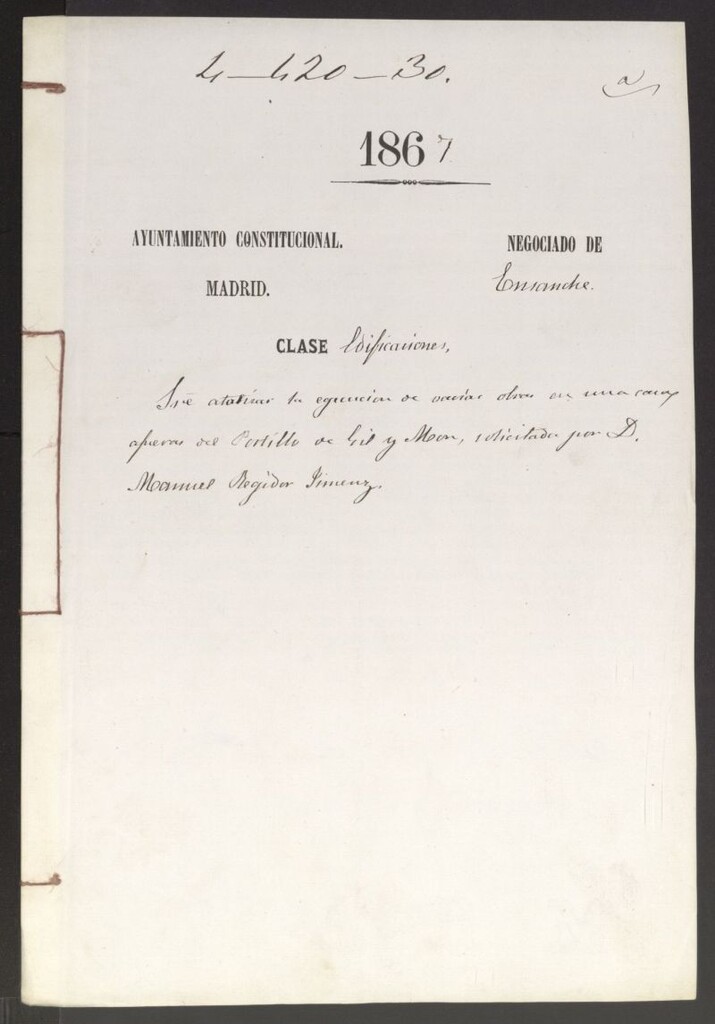 4-420-30.
a
1867
AYUNTAMIENTO CONSTITUCIONAL.
MADRID.
NEGOCIADO DE
Ensanche.
CLASE Edificaciones,
la egecucion de varias obras en una casa
afueras del Portillo de Gil y Mon, solicitada por D.
Manuel Regidor Jimenz.